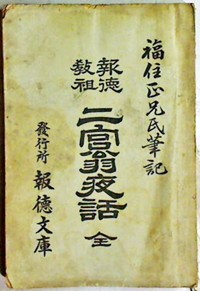 福住正兄氏筆記
報徳教祖
二宮翁夜話 全
發行所 報徳文庫